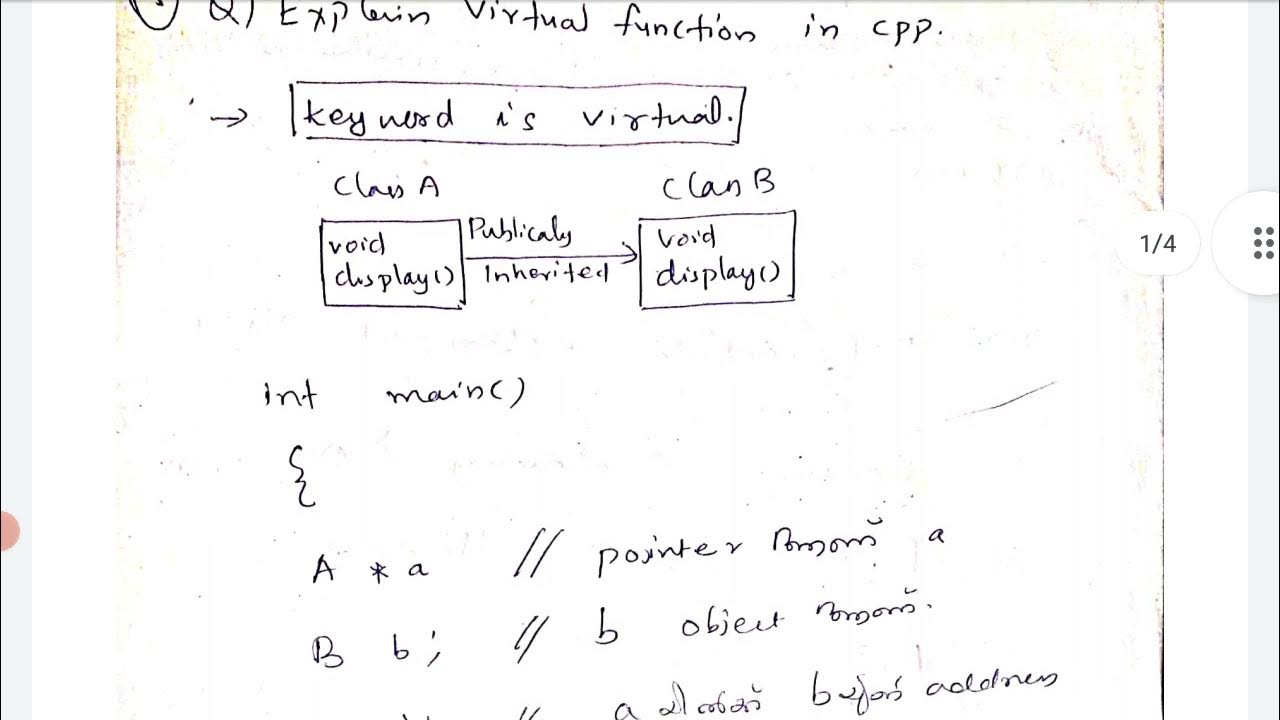 Q) Explain Virtual function in cpp.
→ keyword is virtual.
Class A
Class B
void
display()
Publicaly
Inherited
void
display()
1/4
int main()
{
A * a // pointer ആണ് a
B b; // b object ആണ്.
// a യിൽ b യുടെ address